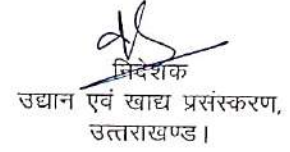 निदेशक
उद्यान एवं खाद्य प्रसंस्करण,
उत्तराखण्ड।